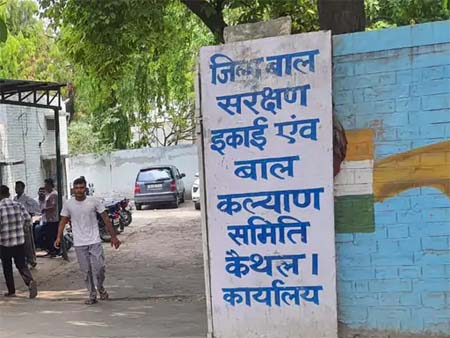 जिला बाल
सरक्षण
इकाई एंव
बाल
कल्याण
समिति
कैथल।
कार्यालय